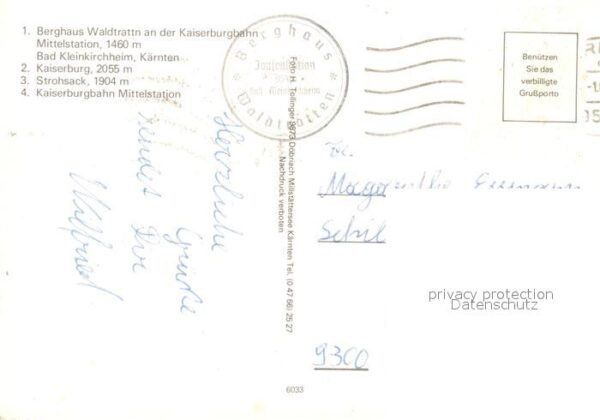 1. Berghaus Waldtrattn an der Kaiserburgbahn
Mittelstation, 1460 m
Bad Kleinkirchheim, Kärnten
2. Kaiserburg, 2055 m
3. Strohsack, 1904 m
4. Kaiserburgbahn Mittelstation
Berghaus
Waldtratten
Foto H. Tollinger 9873 Döbriach Millstättersee Kärnten Tel. (0 47 66) 25 27
Nachdruck verboten
Benützen
Sie das
verbilligte
Grußporto
Herzliche
Grüße
sendet Dir
Wilfried
9300
privacy protection
Datenschutz
6033